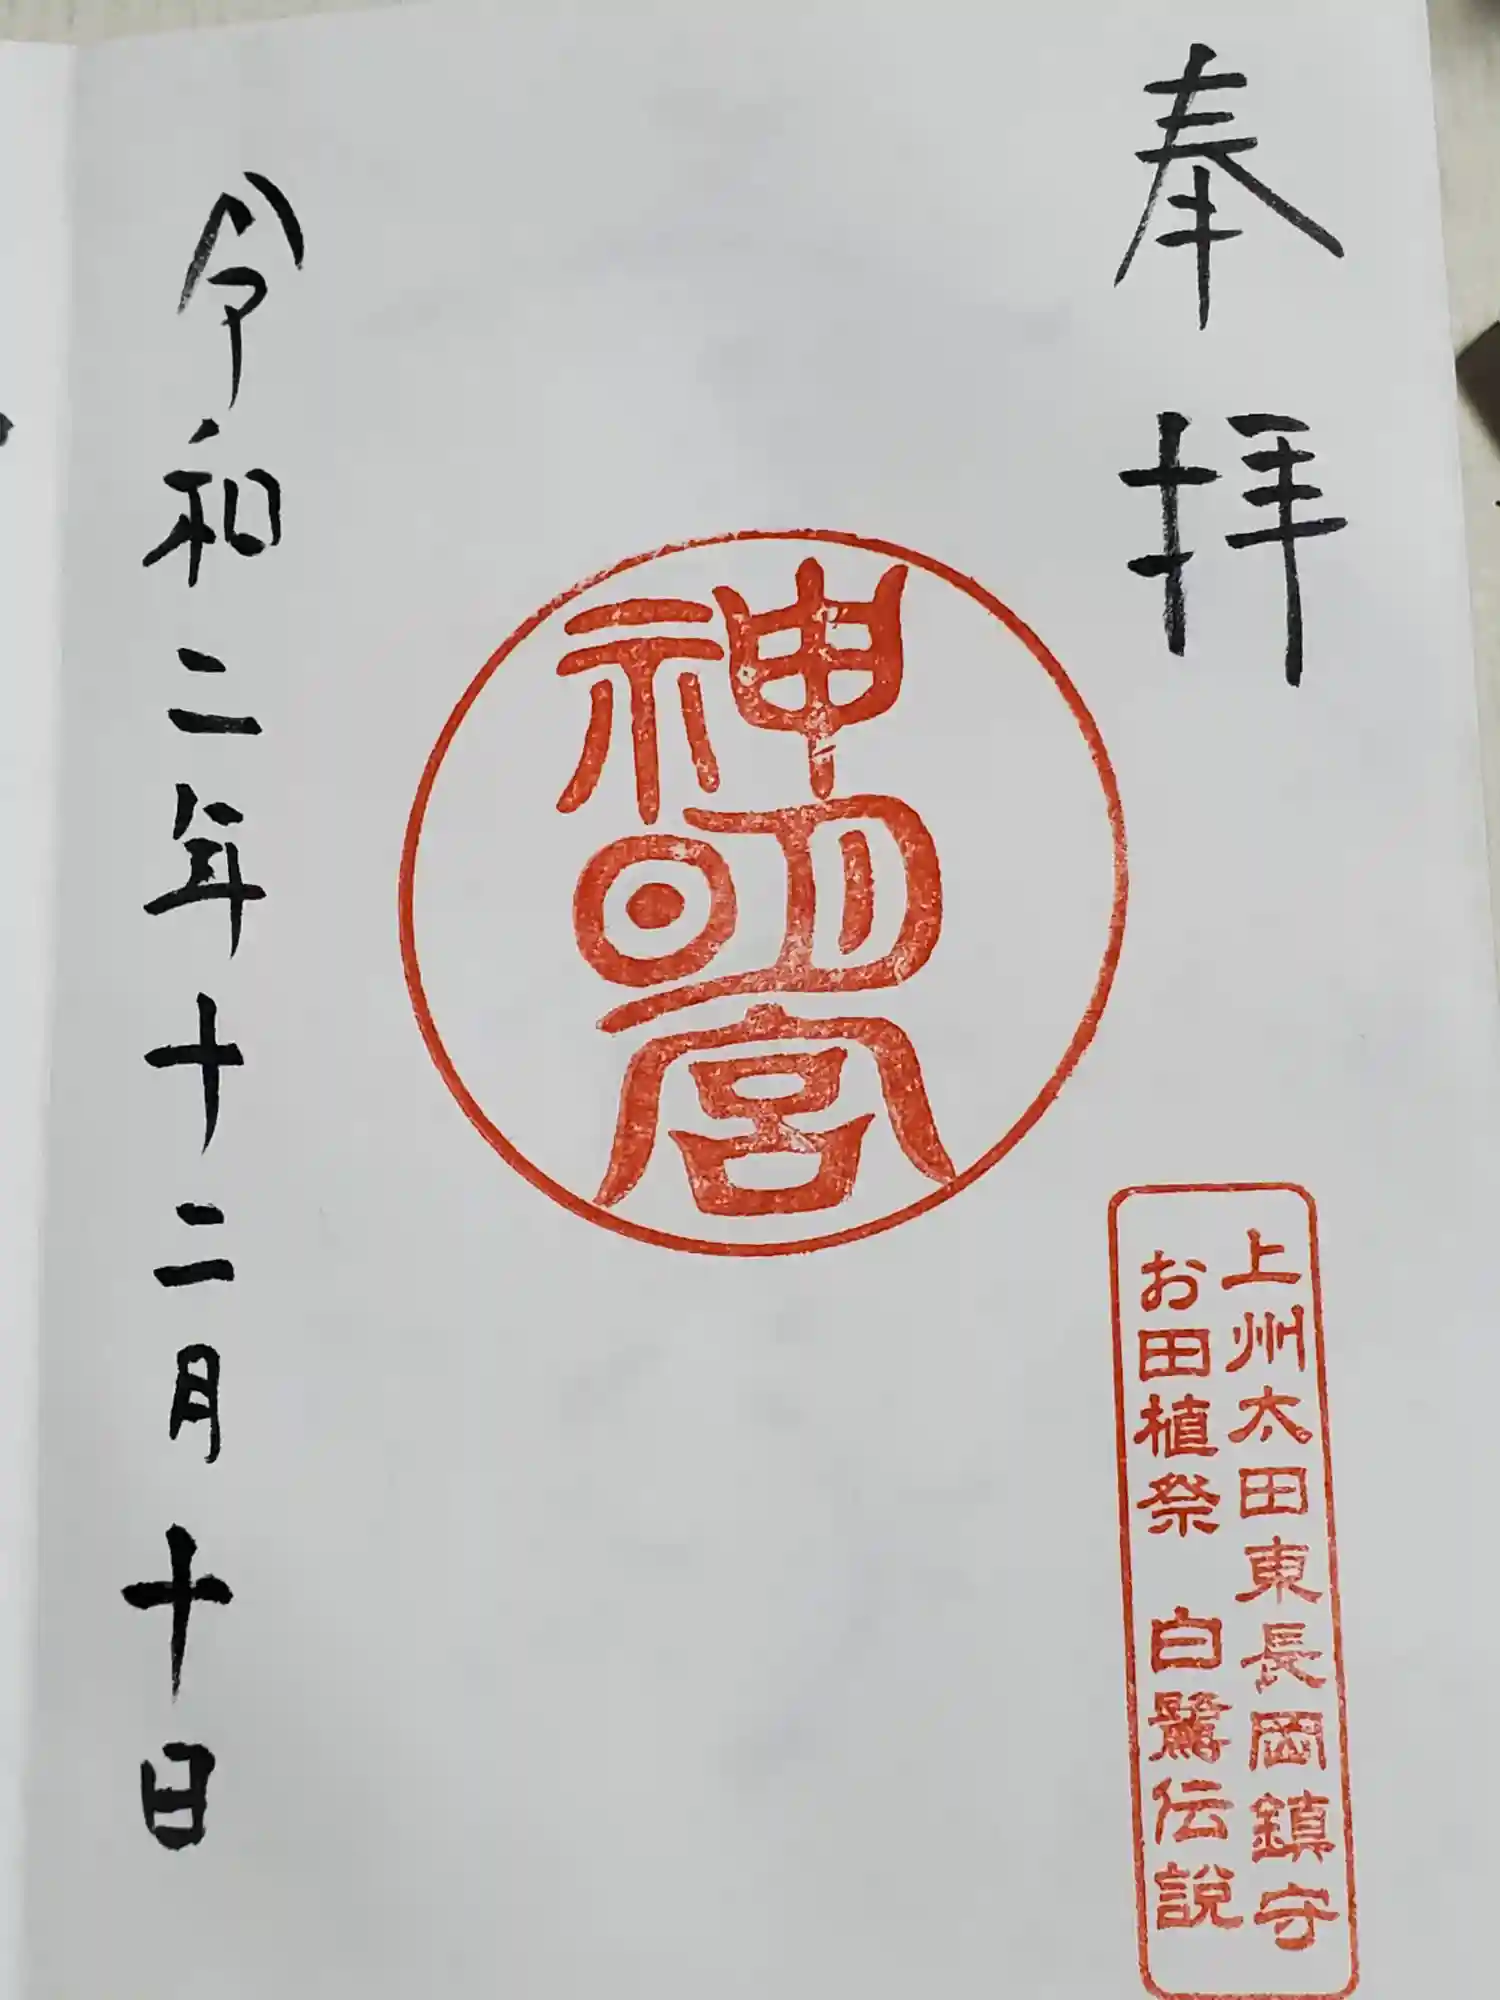 奉拝
上州太田東長岡鎮守
お田植祭 白鷺伝説
神明宮
令和二年十二月十日